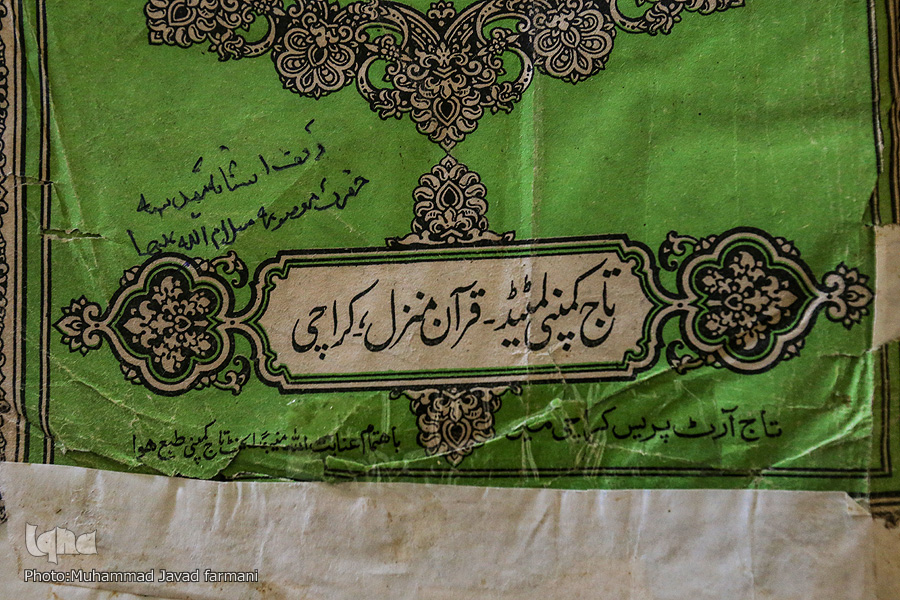 وقف آستانه مقدسه
حضرت معصومه سلام الله علیها
تاج کمپنی لمٹیڈ - قرآن منزل، کراچی
تاج آرٹ پریس کراچی میں
باہتمام عنایت اللہ تاج کمپنی طبع ہوا
Iqna
Photo:Muhammad Javad farmani